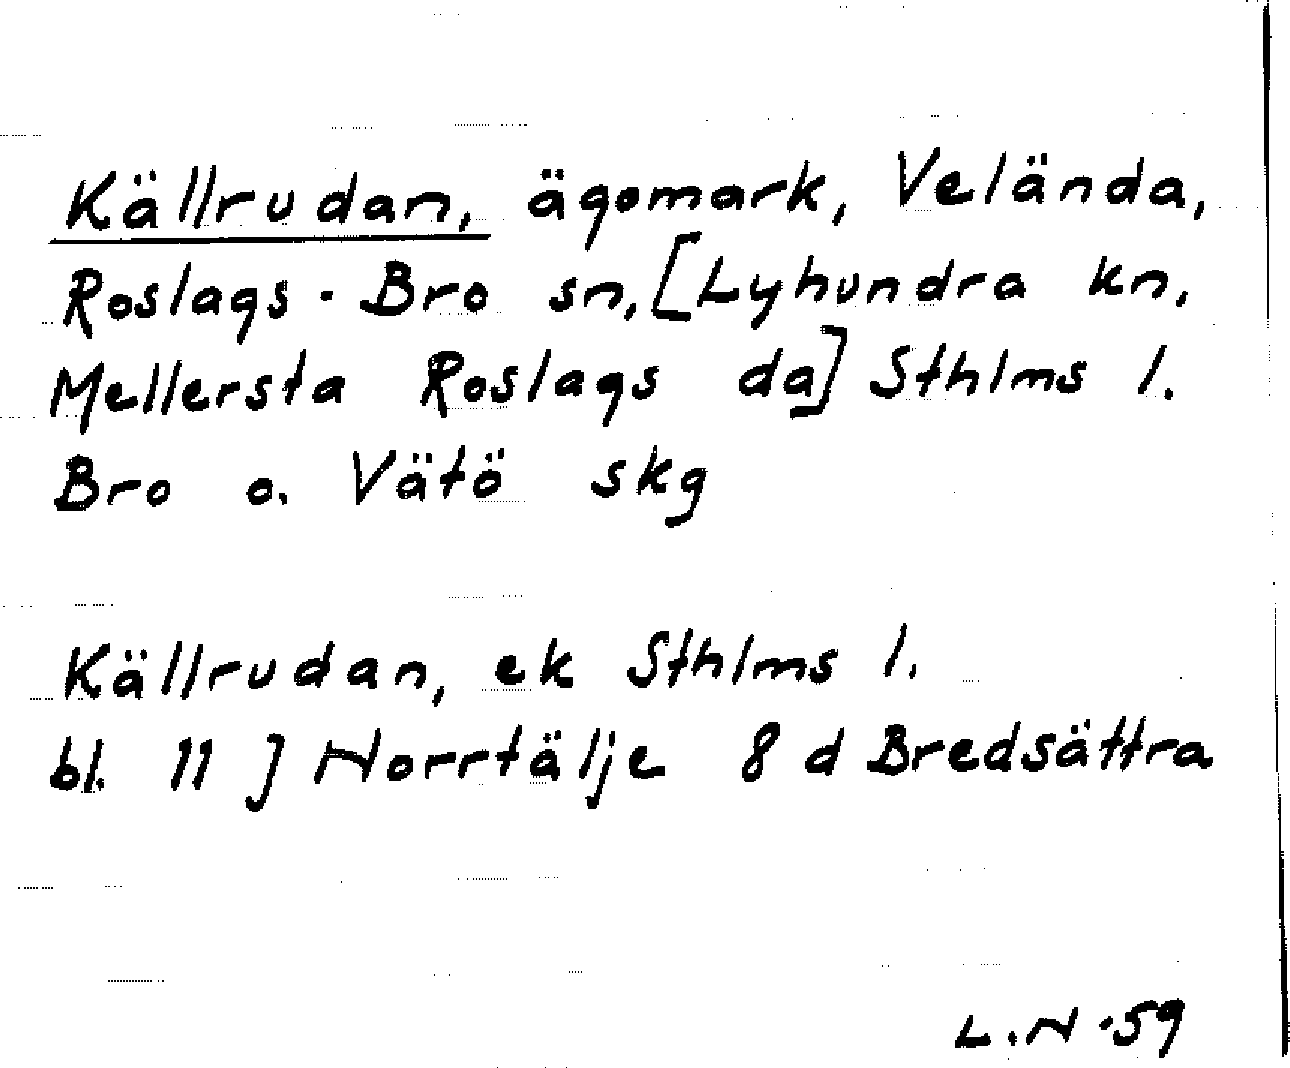 Källrudan, ägomark, Velända,
Roslags-Bro sn, [Lyhundra kn,
Mellersta Roslags da] Sthlms l.
Bro o. Vätö skg
Källrudan, ek Sthlms l.
bl. 11 J Norrtälje 8 d Bredsättra
L.N -59